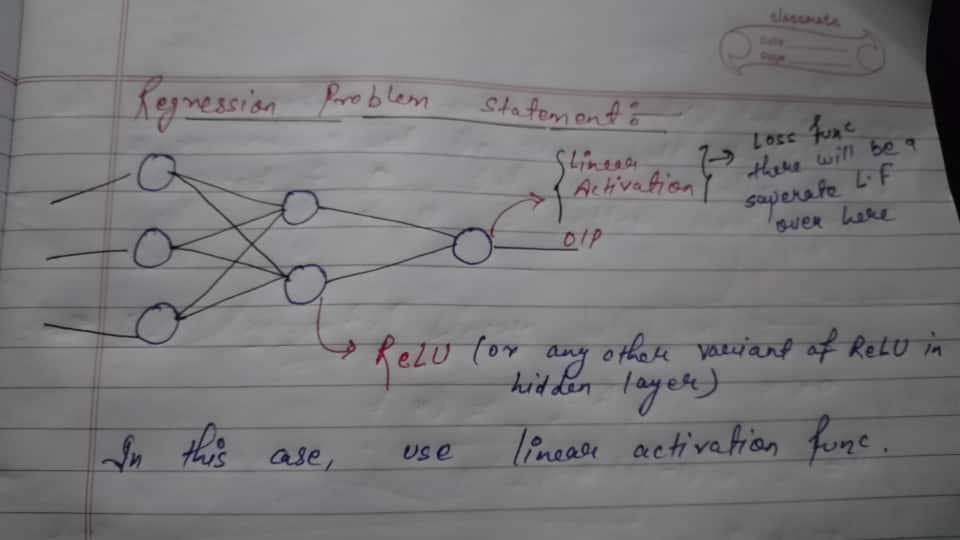 classmate
Date
Page
Regression Problem Statement:
{Linear
Activation}
→ Loss func
there will be a
saperate L.F
over here
O/P
ReLU (or any other variant of ReLU in
hidden layer)
In this case, use linear activation func.